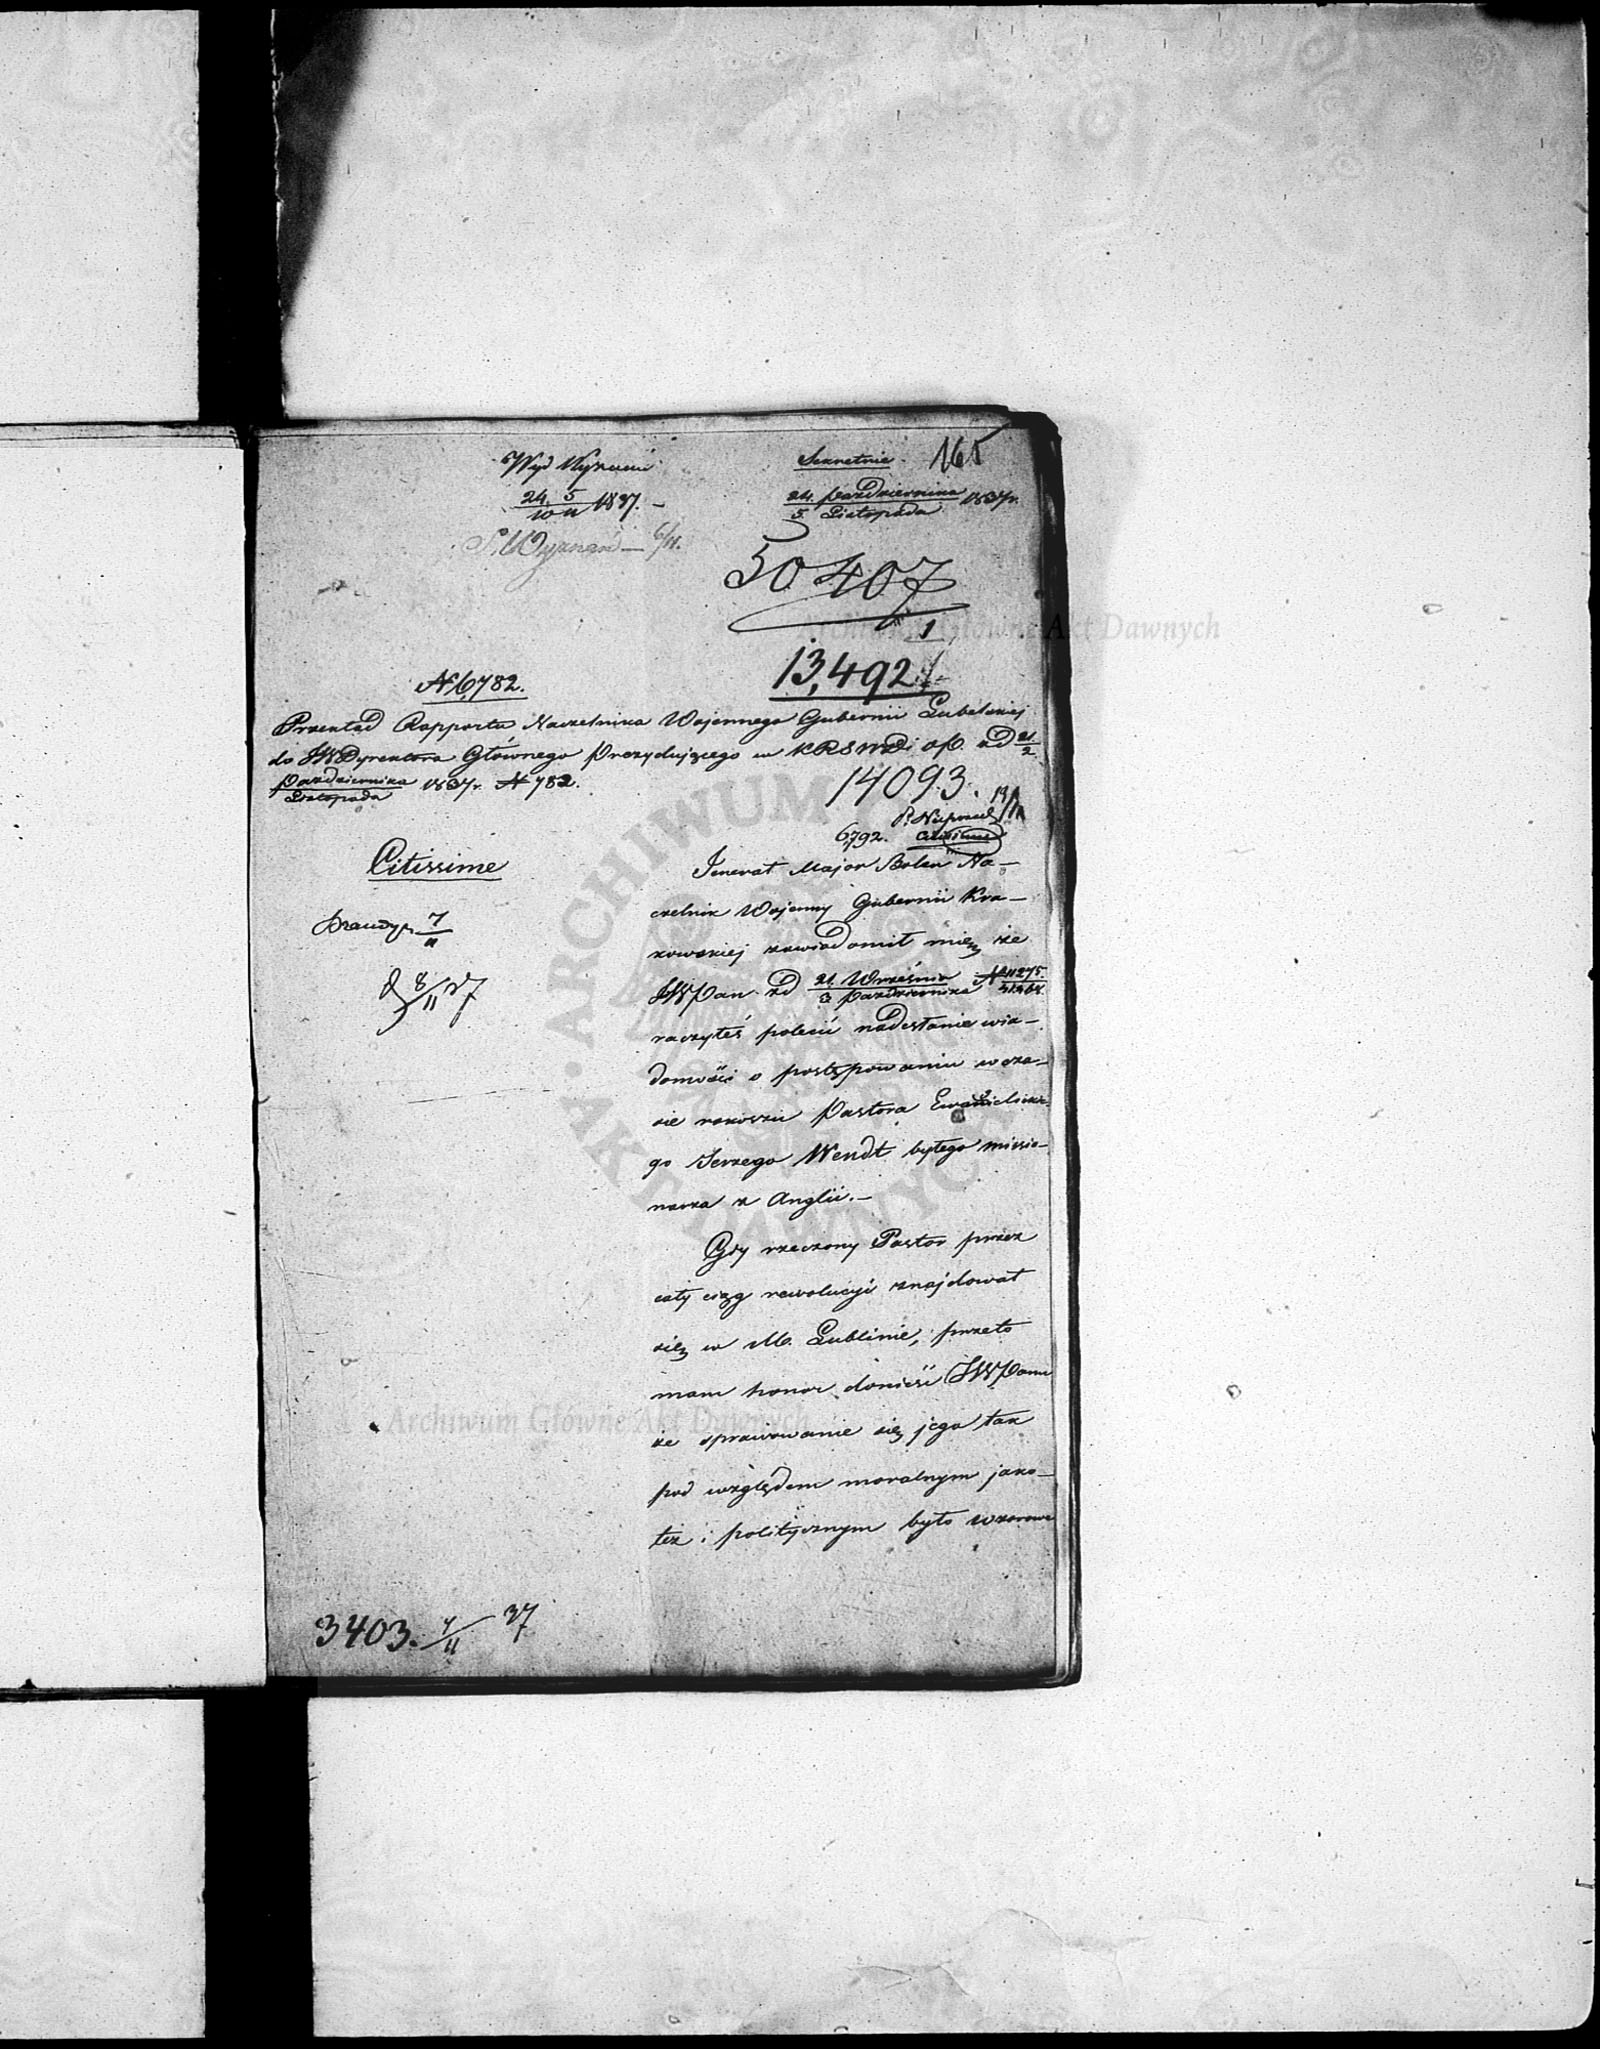 Wyd Wyznań
Sekretnie. 165
24. 5 / 10 11 1837. –
24. Października / 5. Listopada 1837 r.
S. Wyznań — 6/11.
50407
1
13,492
N 6,782.
Przekład Rapportu Naczelnika Wojennego Gubernii Lubelskiej
do JW Dyrektora Głównego Prezydującego w KRSWD i OP. od 21/2
Października / Listopada 1837 r. N 782.
14093.
6,792.
Citissime
Jenerał Major Bolen Na—
czelnik Wojenny Gubernii Kra—
kowskiej zawiadomił mię, że
7/11
JW Pan od 21. Września / 3 Października N 11275.
8/11 37
raczyłeś polecić nadesłanie wia—
domości o postępowaniu w cza—
sie rokoszu Pastora Ewanielickie
go Jerzego Wendt byłego missio—
narza z Anglii.—
Gdy rzeczony Pastor przez
cały ciąg rewolucyi znajdował
się w M. Lublinie, przeto
mam honor donieść JW Panu
że sprawowanie się jego tak
pod względem moralnym jako—
też i politycznym było wzorowe
3403. 7/11 37
Archiwum Główne Akt Dawnych
Archiwum Główne Akt Dawnych
ARCHIWUM
AKT DAWNYCH